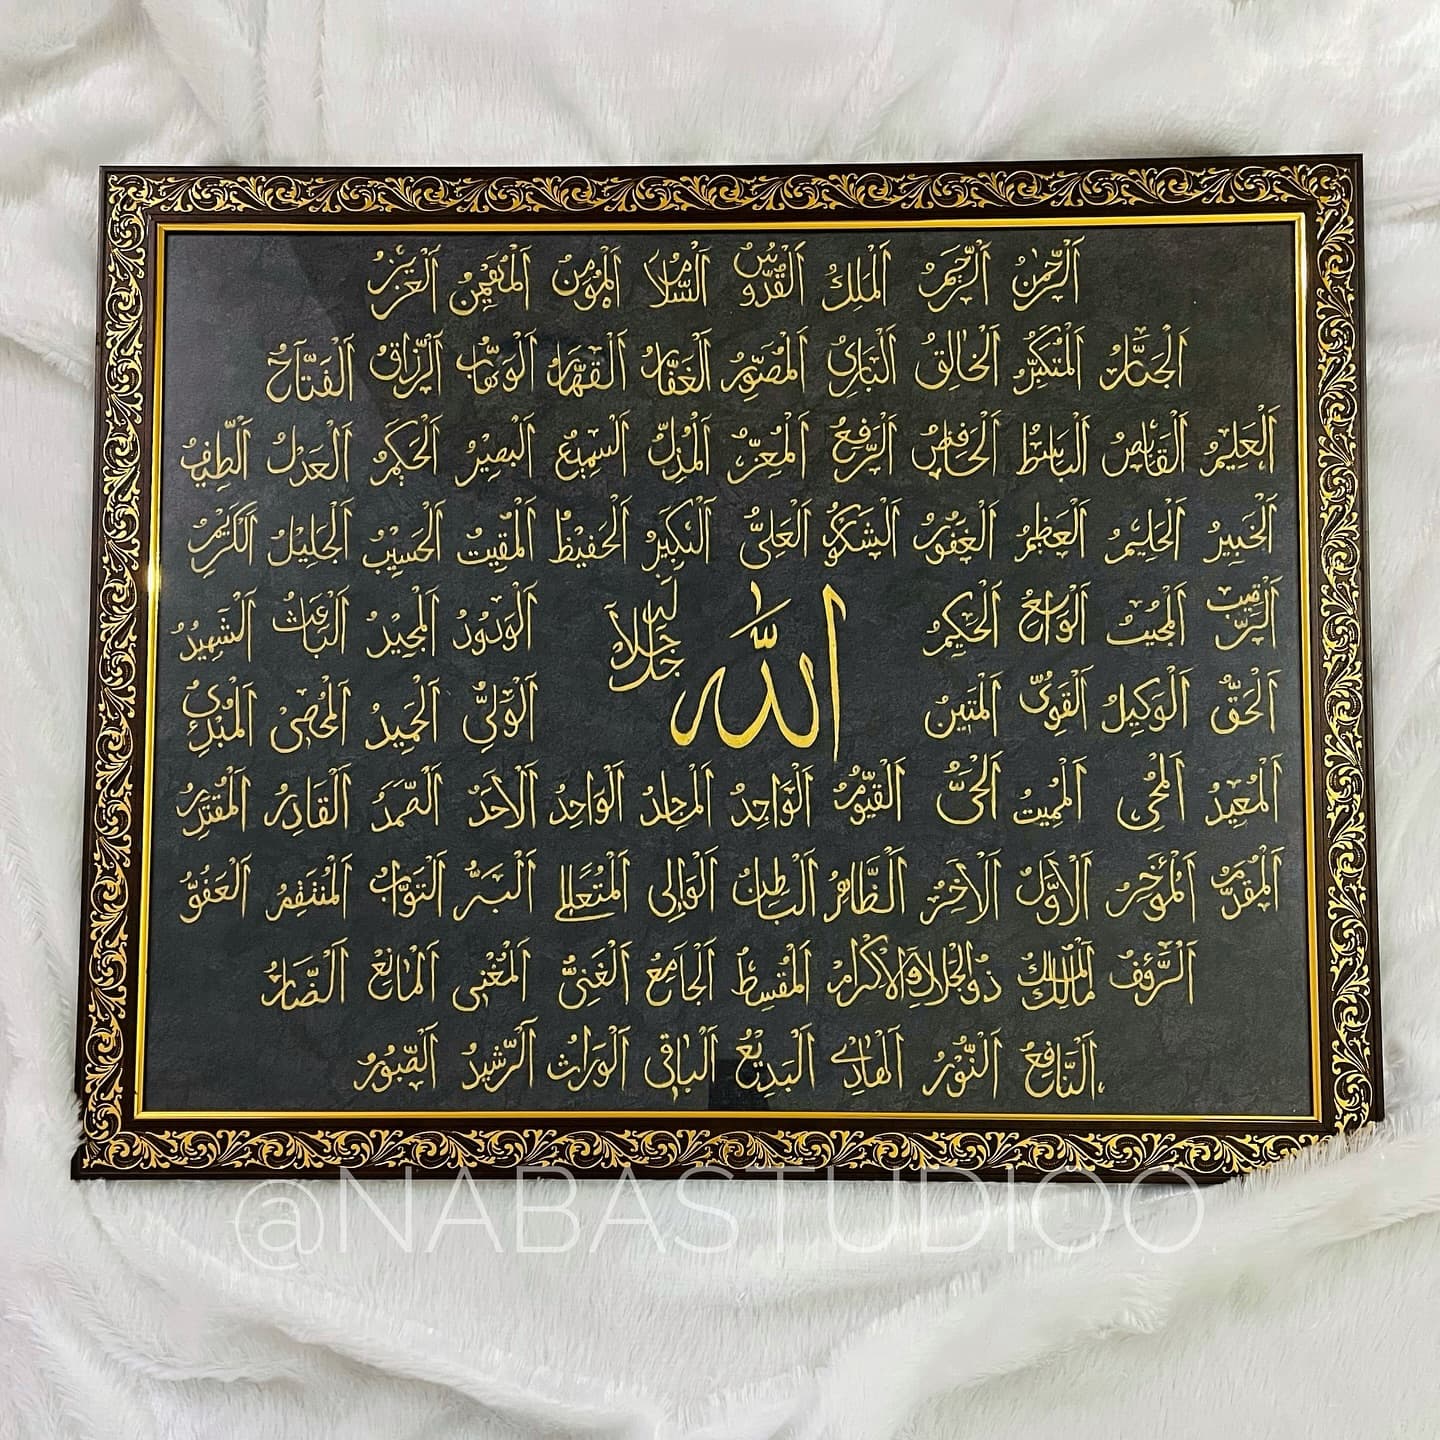 اَلْرَّحْمٰنُ اَلْرَّحِيْمُ اَلْمَلِكُ اَلْقُدُّوْسُ اَلْسَّلَامُ اَلْمُؤْمِنُ اَلْمُهَيْمِنُ اَلْعَزِيْزُ
اَلْجَبَّارُ اَلْمُتَكَبِّرُ اَلْخَالِقُ اَلْبَارِئُ اَلْمُصَوِّرُ اَلْغَفَّارُ اَلْقَهَّارُ اَلْوَهَّابُ اَلْرَّزَّاقُ اَلْفَتَّاحُ
اَلْعَلِيْمُ اَلْقَابِضُ اَلْبَاسِطُ اَلْخَافِضُ اَلْرَّافِعُ اَلْمُعِزُّ اَلْمُذِلُّ اَلْسَّمِيْعُ اَلْبَصِيْرُ اَلْحَكَمُ اَلْعَدْلُ اَللَّطِيْفُ
اَلْخَبِيْرُ اَلْحَلِيْمُ اَلْعَظِيْمُ اَلْغَفُوْرُ اَلْشَّكُوْرُ اَلْعَلِىُّ اَلْكَبِيْرُ اَلْحَفِيْظُ اَلْمُقِيْتُ اَلْحَسِيْبُ اَلْجَلِيْلُ اَلْكَرِيْمُ
اَلْرَّقِيْبُ اَلْمُجِيْبُ اَلْوَاسِعُ اَلْحَكِيْمُ اَلْوَدُوْدُ اَلْمَجِيْدُ اَلْبَاعِثُ اَلْشَّهِيْدُ
الله جل جلاله
اَلْحَقُّ اَلْوَكِيْلُ اَلْقَوِىُّ اَلْمَتِيْنُ اَلْوَلِىُّ اَلْحَمِيْدُ اَلْمُحْصِىْ اَلْمُبْدِئُ
اَلْمُعِيْدُ اَلْمُحْىِ اَلْمُمِيْتُ اَلْحَىُّ اَلْقَيُّوْمُ اَلْوَاجِدُ اَلْمَاجِدُ اَلْوَاحِدُ اَلْاَحَدُ اَلْصَّمَدُ اَلْقَادِرُ اَلْمُقْتَدِرُ
اَلْمُقَدِّمُ اَلْمُؤَخِّرُ اَلْاَوَّلُ اَلْاٰخِرُ اَلْظَّاهِرُ اَلْبَاطِنُ اَلْوَالِى اَلْمُتَعَالِى اَلْبَرُّ اَلْتَّوَّابُ اَلْمُنْتَقِمُ اَلْعَفُوُّ
اَلْرَّؤُفُ مَالِكُ الْمُلْكِ ذُوالْجَلَالِ وَالْاِكْرَامِ اَلْمُقْسِطُ اَلْجَامِعُ اَلْغَنِىُّ اَلْمُغْنِى اَلْمَانِعُ اَلْضَّارُّ
اَلْنَّافِعُ اَلْنُّوْرُ اَلْهَادِىْ اَلْبَدِيْعُ اَلْبَاقِى اَلْوَارِثُ اَلْرَّشِيْدُ اَلْصَّبُوْرُ
@NABASTUDIOO